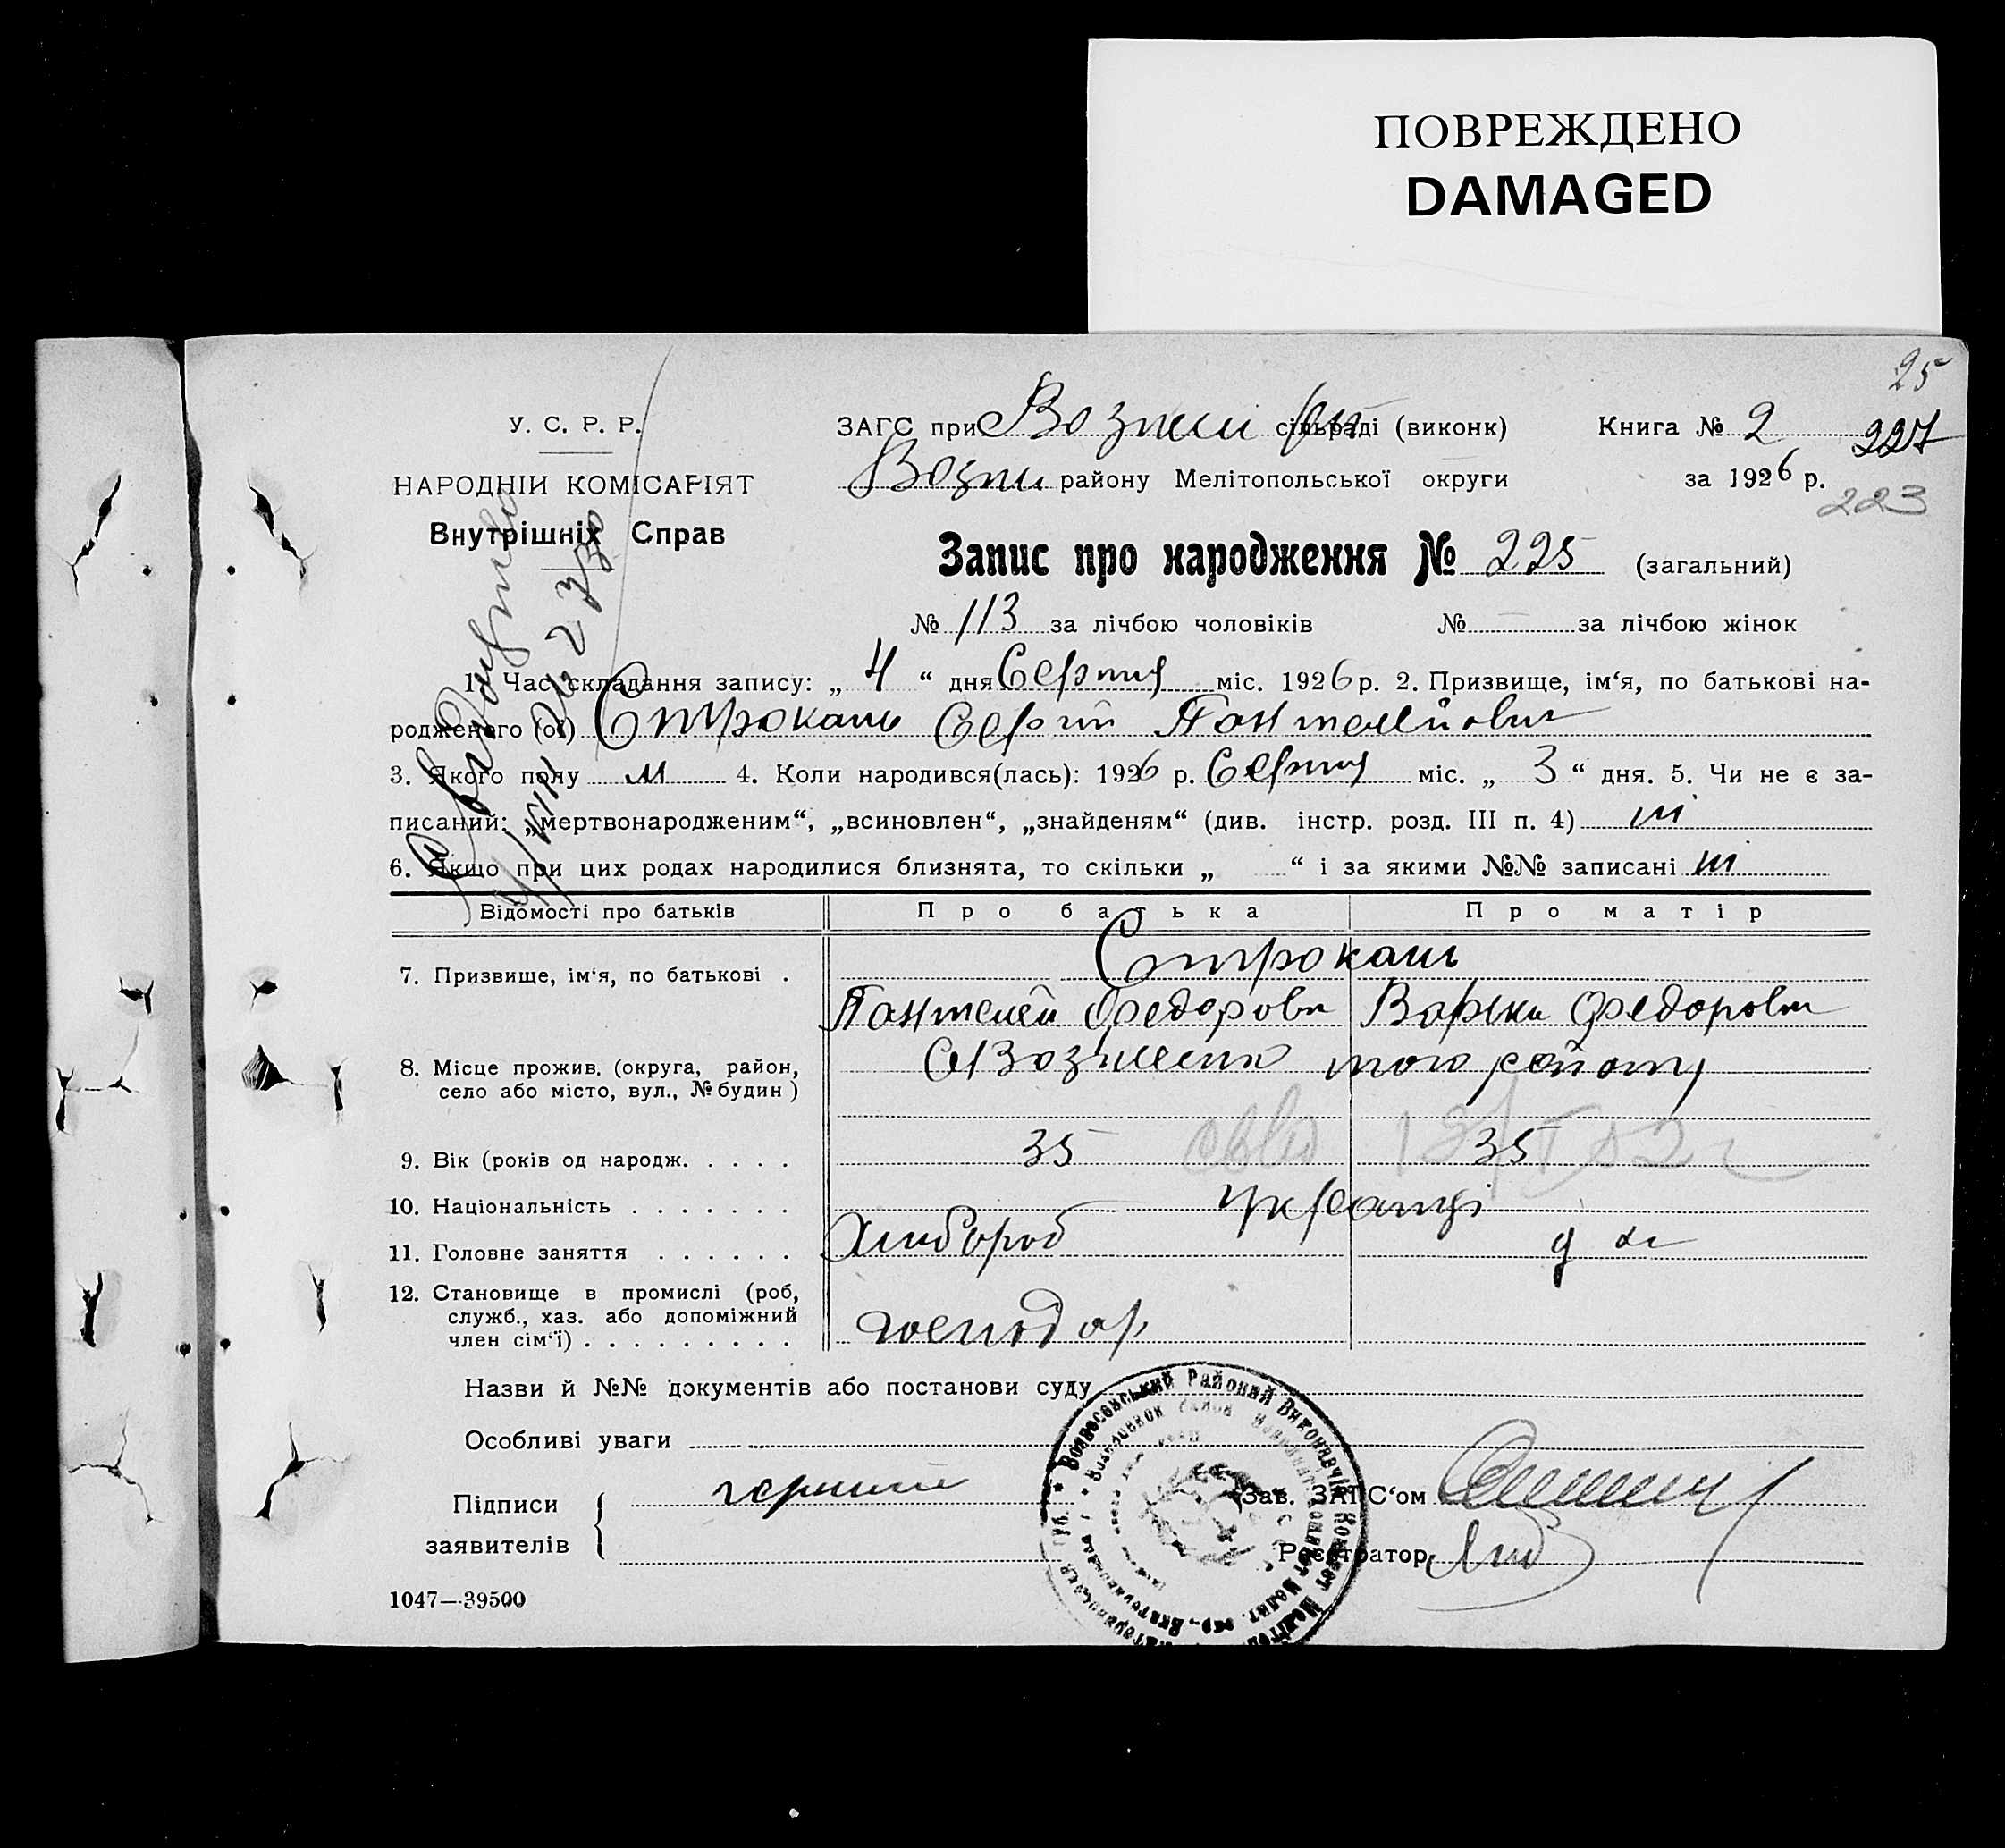 ПОВРЕЖДЕНО
DAMAGED
25
У. С. Р. Р.
НАРОДНІЙ КОМІСАРІЯТ
Внутрішніх Справ
ЗАГС при Возне сільраді (виконк)
Книга № 2
227
Возне району Мелітопольської округи
за 1926 р.
223
Запис про народження № 225 (загальний)
№ 113 за лічбою чоловіків № — за лічбою жінок
1. Час складання запису: „ 4 “ дня Серпня міс. 1926 р. 2. Призвище, ім‘я, по батькові на-
родженого (ої) Строкань Сергій Пантелейович
3. Якого полу м 4. Коли народився(лась): 1926 р. Серпня міс. „ 3 “ дня. 5. Чи не є за-
писаний: „мертвонародженим“, „всиновлен“, „знайденям“ (див. інстр. розд. III п. 4) ні
6. Якщо при цих родах народилися близнята, то скільки „ “ і за якими №№ записані ні
Відомості про батьків Про батька Про матір
7. Призвище, ім‘я, по батькові . Строкань
Пантелей Федоров Варька Федоров
8. Місце прожив. (округа, район,
село або місто, вул., № будин ) того району
9. Вік (років од народж. . . . . 35 35
10. Національність . . . . . . . Українці
11. Головне заняття . . . . . . Хлібороб д г
12. Становище в промислі (роб,
служб., хаз. або допоміжний
член сім‘ї) . . . . . . . . . господар
Назви й №№ документів або постанови суду
Особливі уваги
Підписи
заявителів
Зав. ЗАГС‘ом
Реєстратор
Вознесенський Районий Виконавчий Комітет
1047—39500